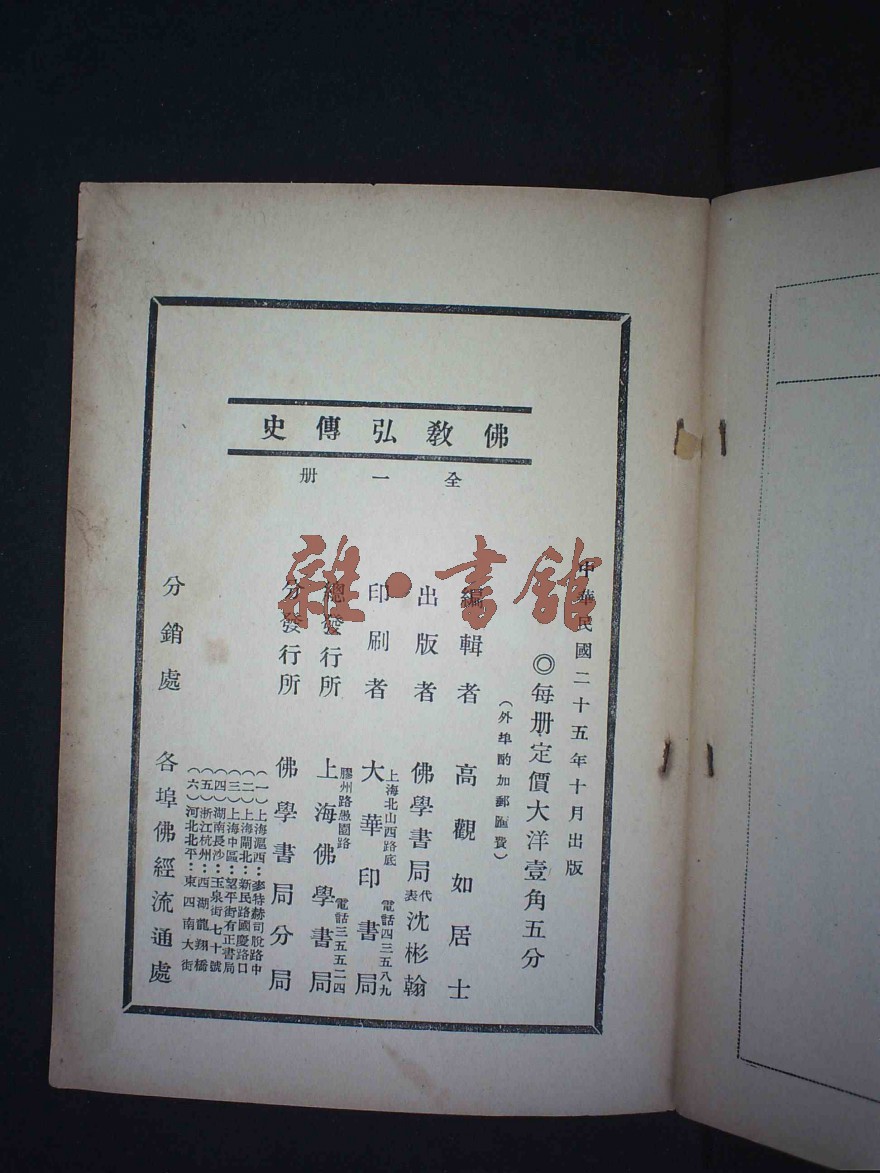 佛教弘傳史
全一册
中華民國二十五年十月出版
◎每册定價大洋壹角五分
（外埠酌加郵匯費）
編輯者 高觀如居士
出版者 佛學書局代表沈彬翰
上海北山西路底 電話四三五八九
印刷者 大華印書局
膠州路愚園路 電話三五五二四
總發行所 上海佛學書局
分發行所 佛學書局分局
（一）上海滬西：麥特赫司脫路中
（二）上海閘北：新民路國慶路口
（三）上海中區：望平街有正書局
（四）湖南長沙：玉泉街七十號
（五）浙江杭州：西湖龍翔橋
（六）河北北平：東四南大街
分銷處 各埠佛經流通處
雜·書館